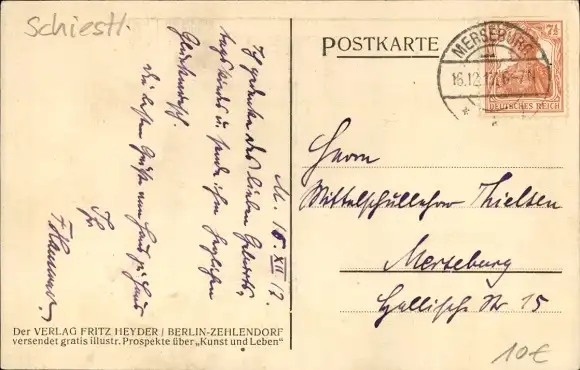 Schiestl.
POSTKARTE
MERSEBURG
16.12.17. 6-7N
7½
DEUTSCHES REICH
M. 15. XII 17.
Ich gedenke des lieben Geburts-
tagskindes u. sende ihm herzlichen
Glückwunsch.
Die besten Grüße von Haus zu Haus
Ihr
Herrn
Mittelschullehrer Thielsen
Merseburg
Hallische Str. 15
Der VERLAG FRITZ HEYDER / BERLIN-ZEHLENDORF
versendet gratis illustr. Prospekte über „Kunst und Leben“
10€